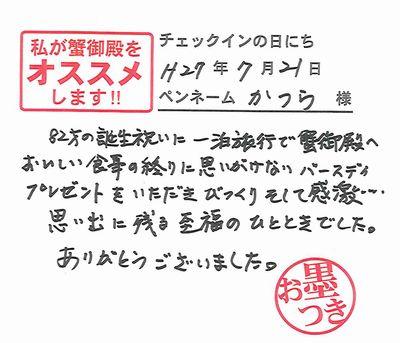 私が蟹御殿を
オススメ
します!!
チェックインの日にち
H27年7月21日
ペンネーム かつら 様
82才の誕生祝いに一泊旅行で蟹御殿へ
おいしい食事の終りに思いがけない バースディ
プレゼントをいただきびっくりそして感激…
思い出に残る至福のひとときでした。
ありがとうございました。
お墨
つき